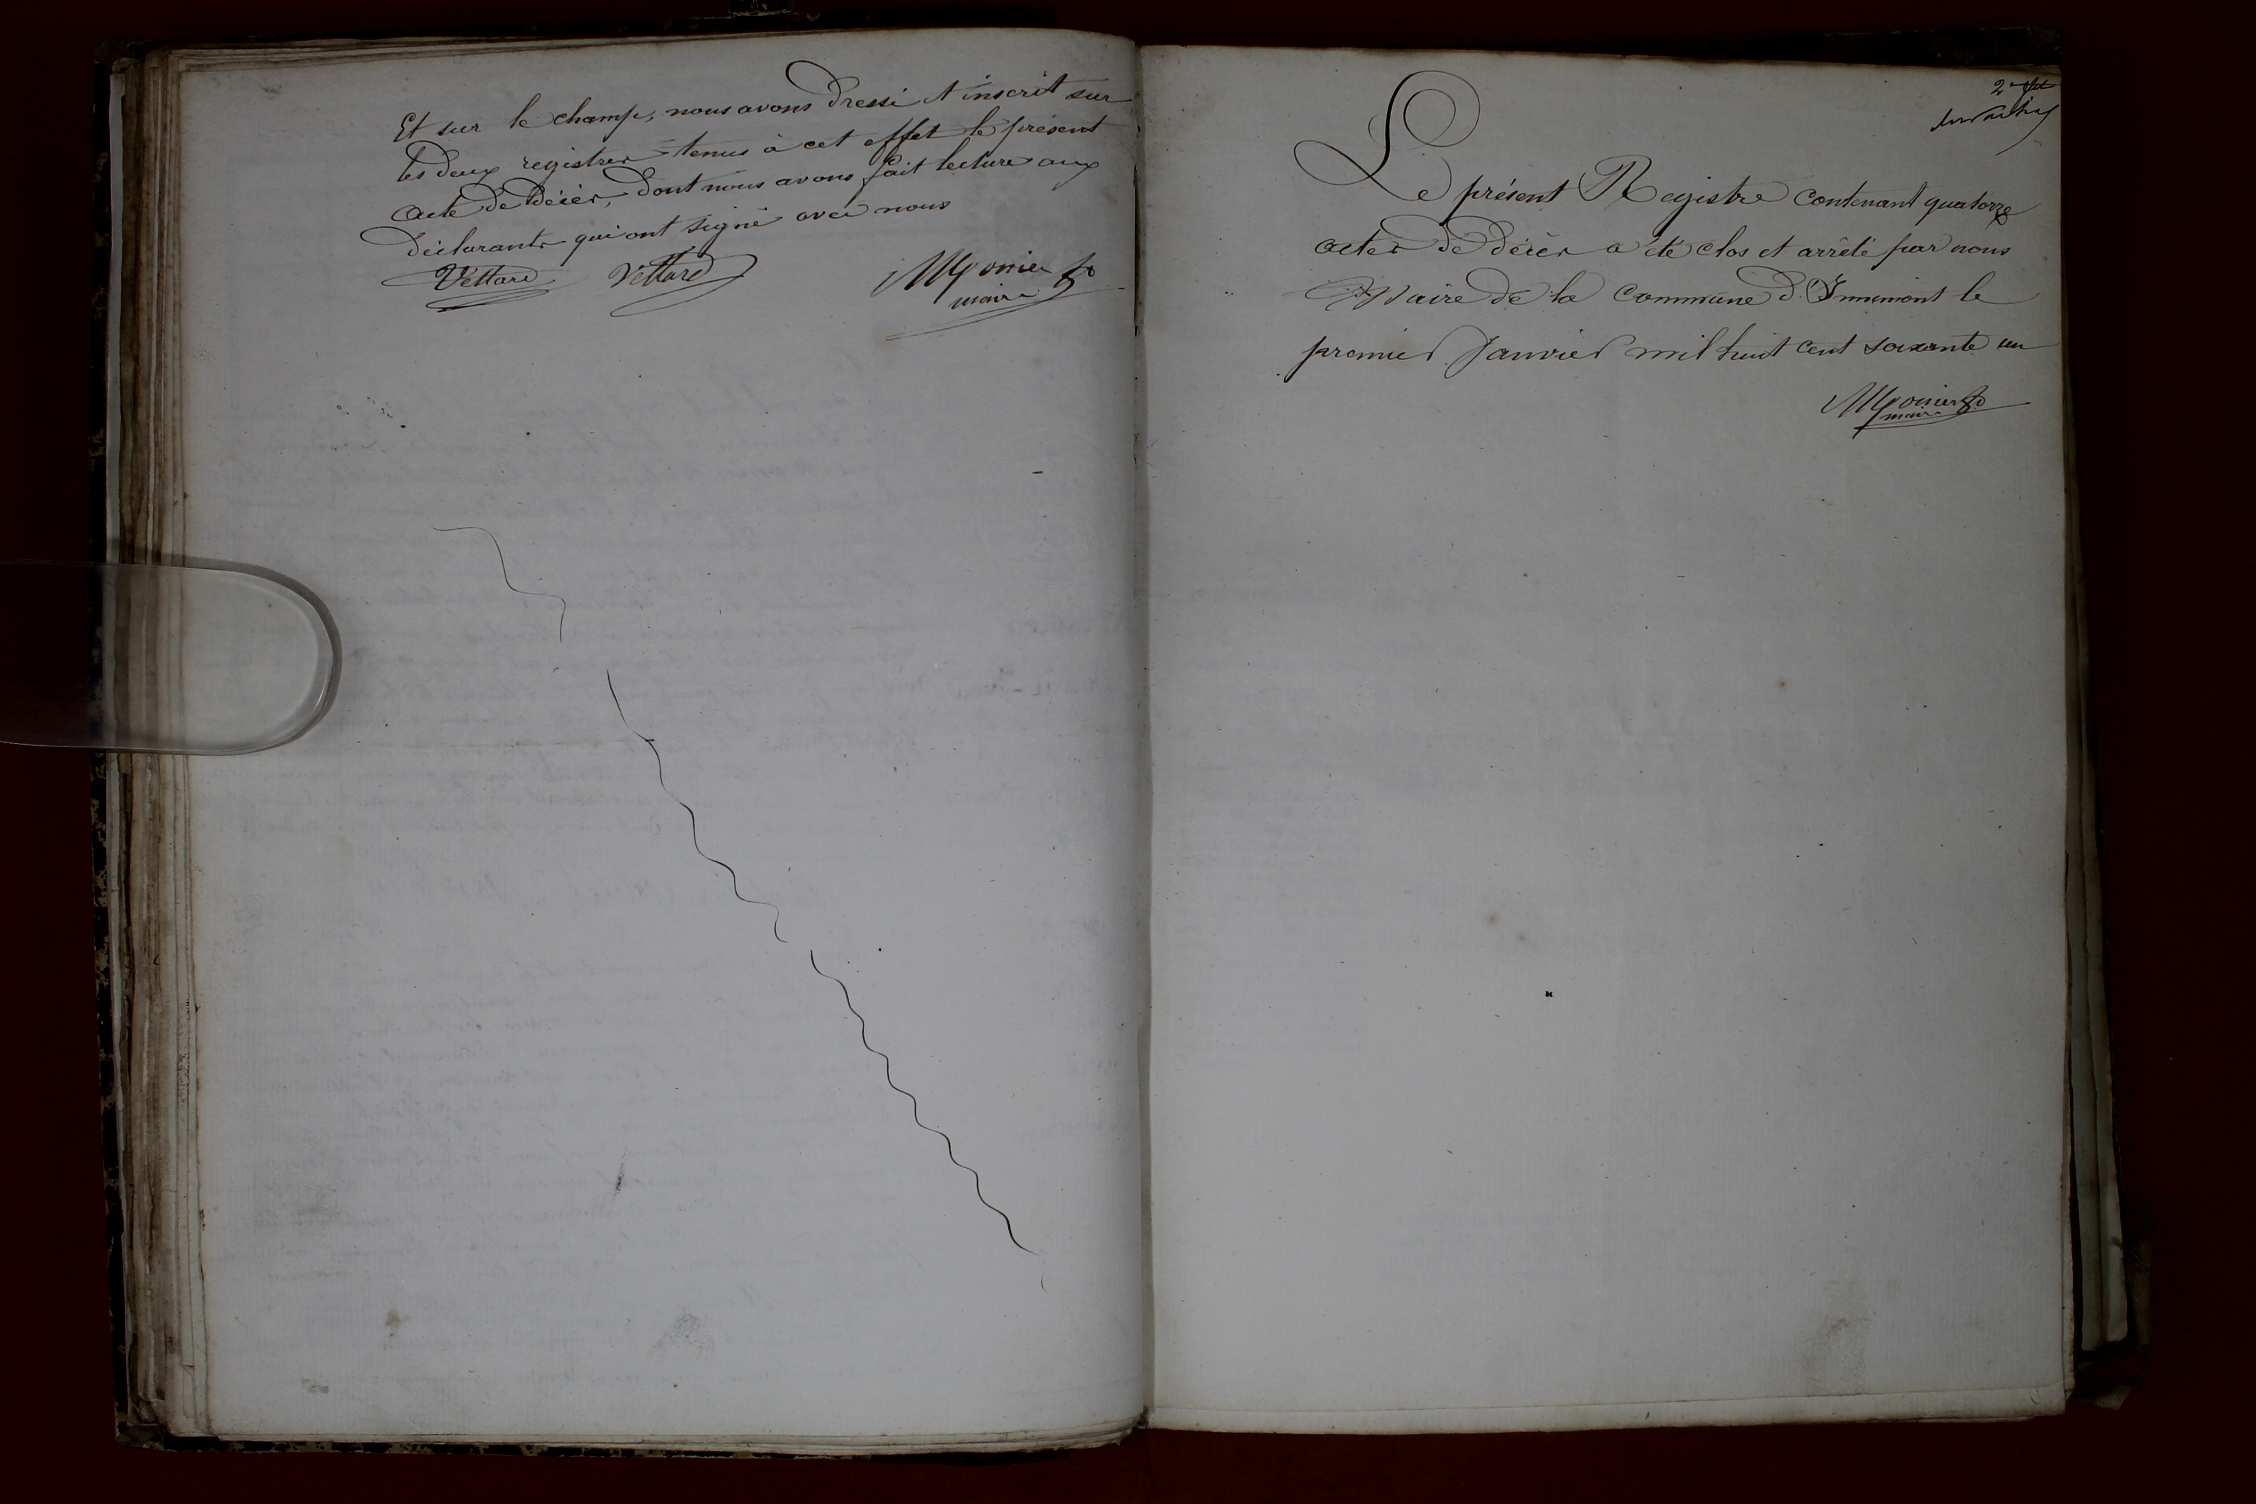 Et sur le champ, nous avons dressé et inscrit sur
les deux registres tenus à cet effet le présent
acte de décès, dont nous avons fait lecture aux
déclarants qui ont signé avec nous
Vettard Vettard
maire
Le présent Registre contenant quatorze
actes de décès a été clos et arrêté par nous
Maire de la Commune d'Innimont le
premier Janvier mil huit cent soixante un
maire